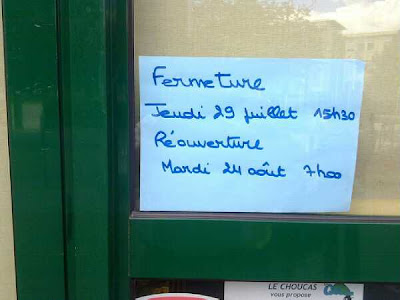 Fermeture
Jeudi 29 juillet 15h30
Réouverture
Mardi 24 août 7h00
LE CHOUCAS
vous propose